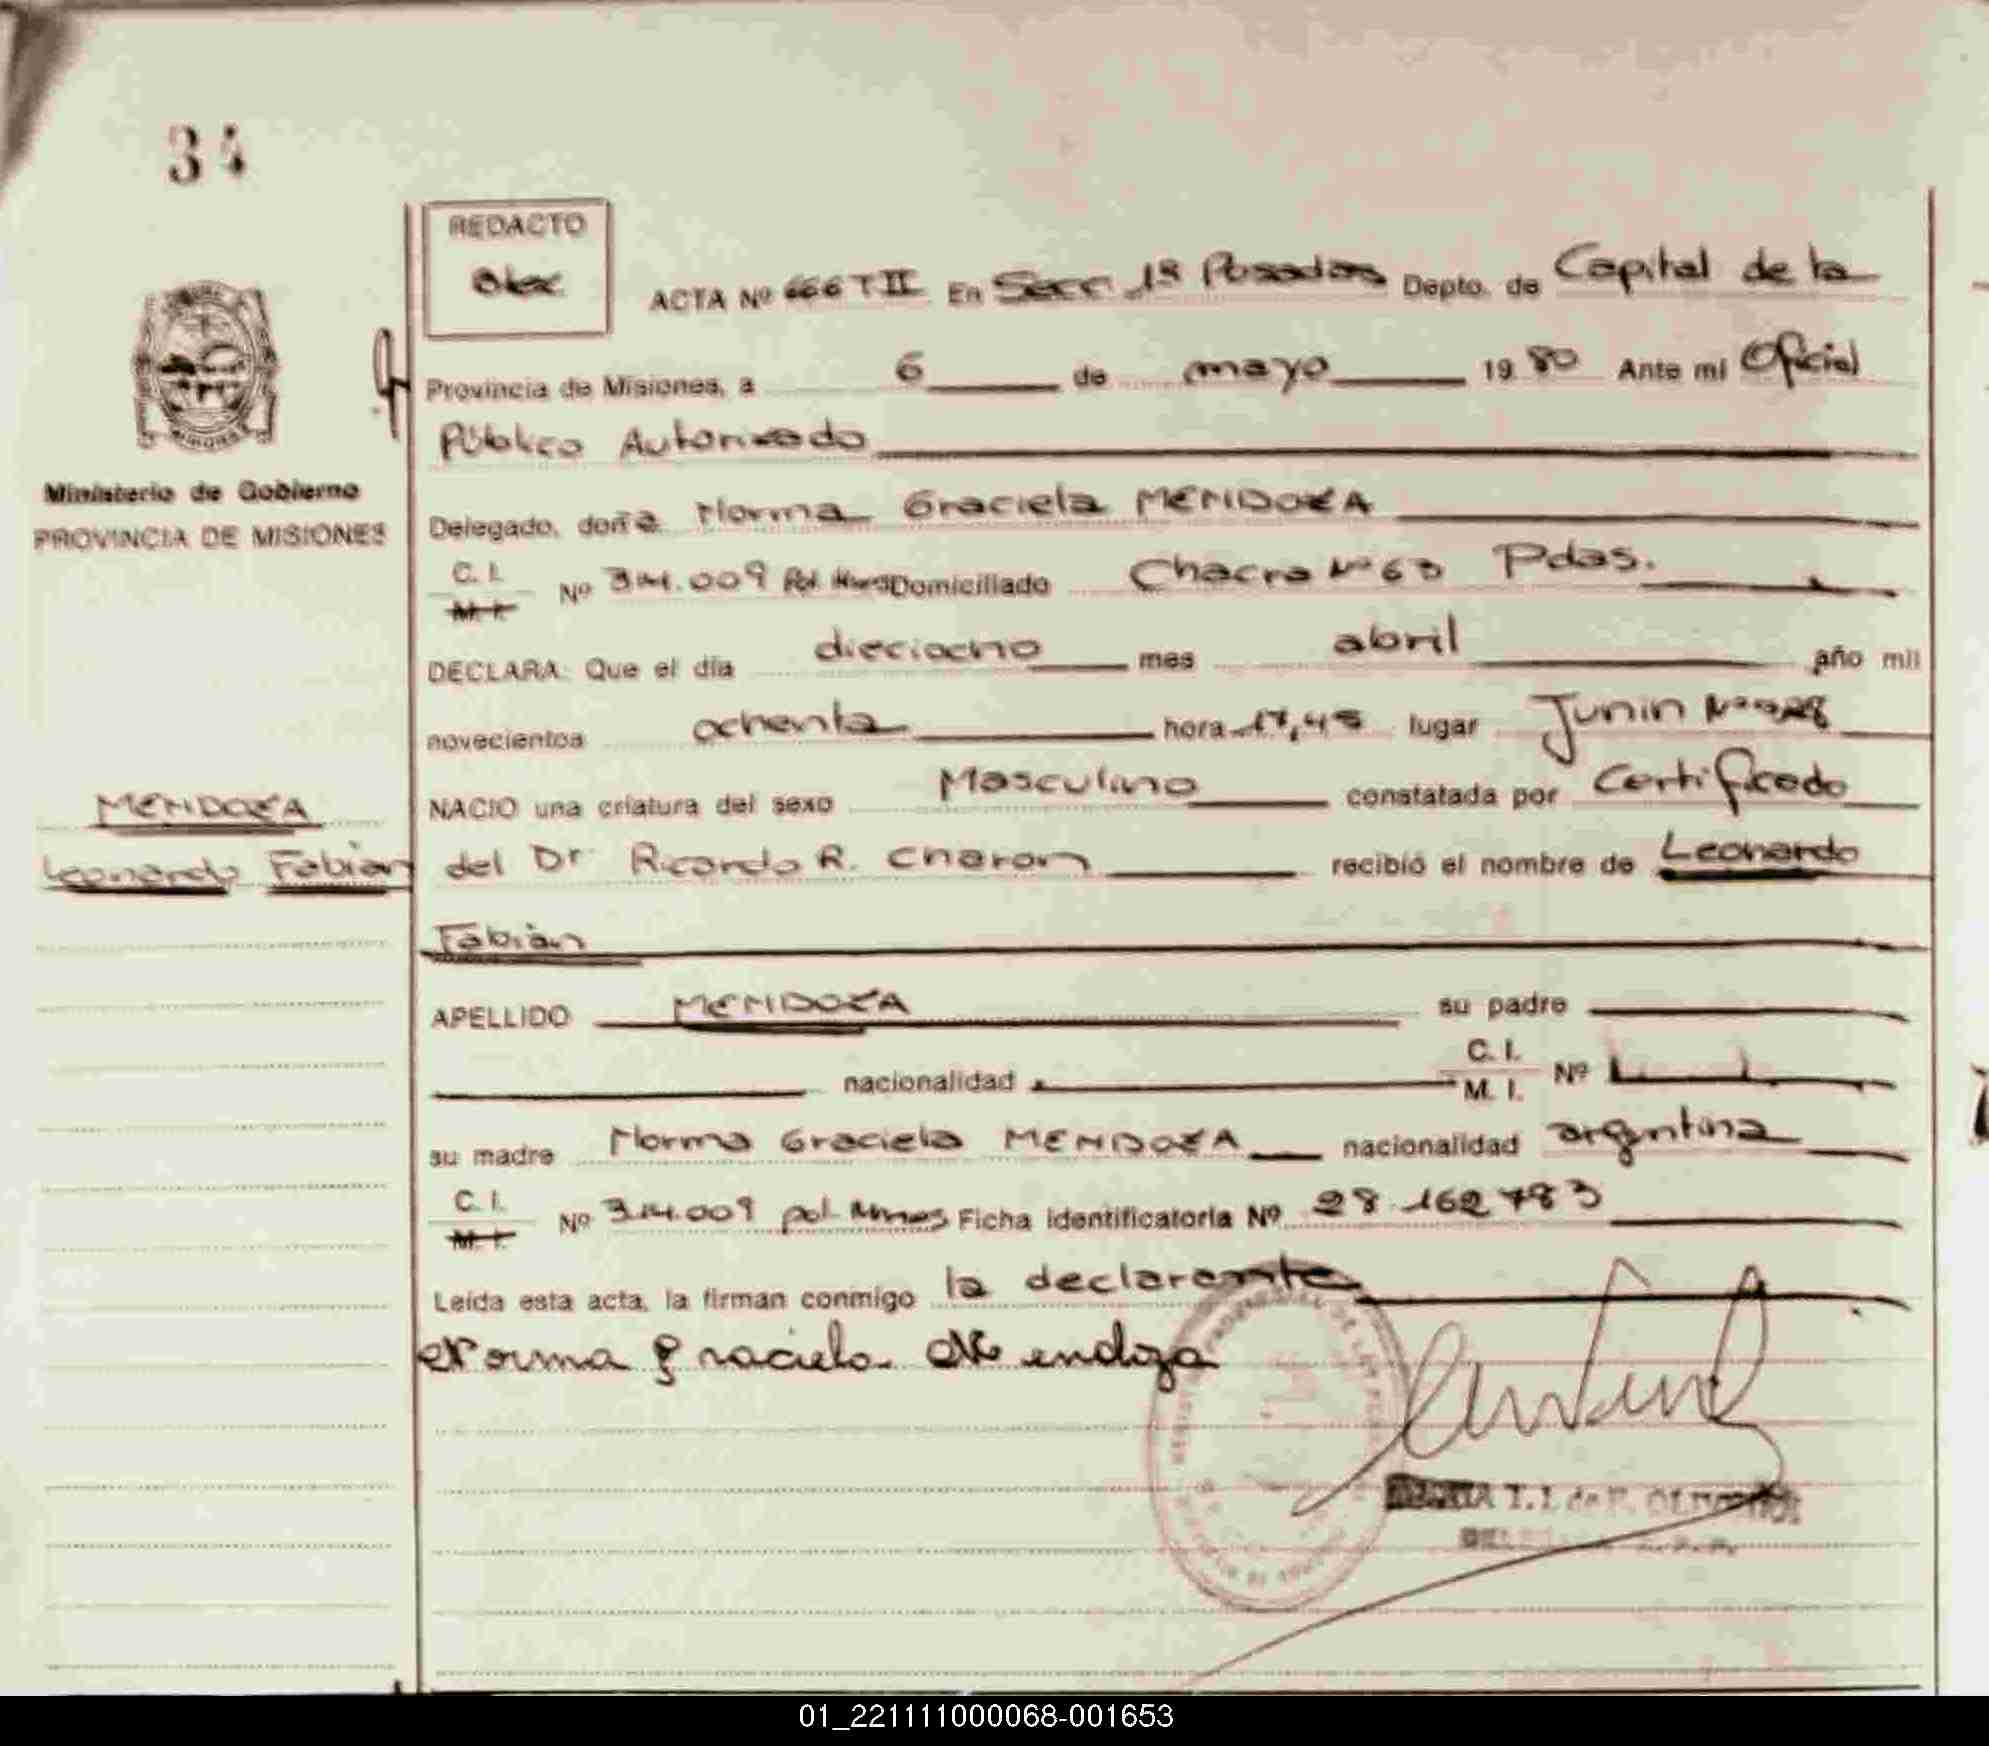 34
REDACTO
ACTA Nº 666 T II En Secc. 1ª Posadas Depto. de Capital de la
Provincia de Misiones, a 6 de mayo 19 80 Ante mi Oficial
Público Autorizado
MISIONES
Ministerio de Gobierno
PROVINCIA DE MISIONES
Delegado, doña Norma Graciela MENDOZA
C. I.
M. I.
Nº 314.009 Pol. Mnes Domiciliado Chacra Nº 63 Pdas.
DECLARA: Que el día dieciocho mes abril año mil
novecientos ochenta hora 17,45 lugar Junin Nº
NACIO una criatura del sexo Masculino constatada por Certificado
MENDOZA
Leonardo Fabian
del Dr. Ricardo R. Charon recibió el nombre de Leonardo
Fabian
APELLIDO MENDOZA su padre
nacionalidad C. I.
M. I. Nº
su madre Norma Graciela MENDOZA nacionalidad argntina
C. I.
M. I.
Nº 314.009 pol. Mnes Ficha identificatoria Nº 28.162.783
Leída esta acta, la firman conmigo la declarante
Norma Graciela Mendoza
T. I. de P.
01_221111000068-001653